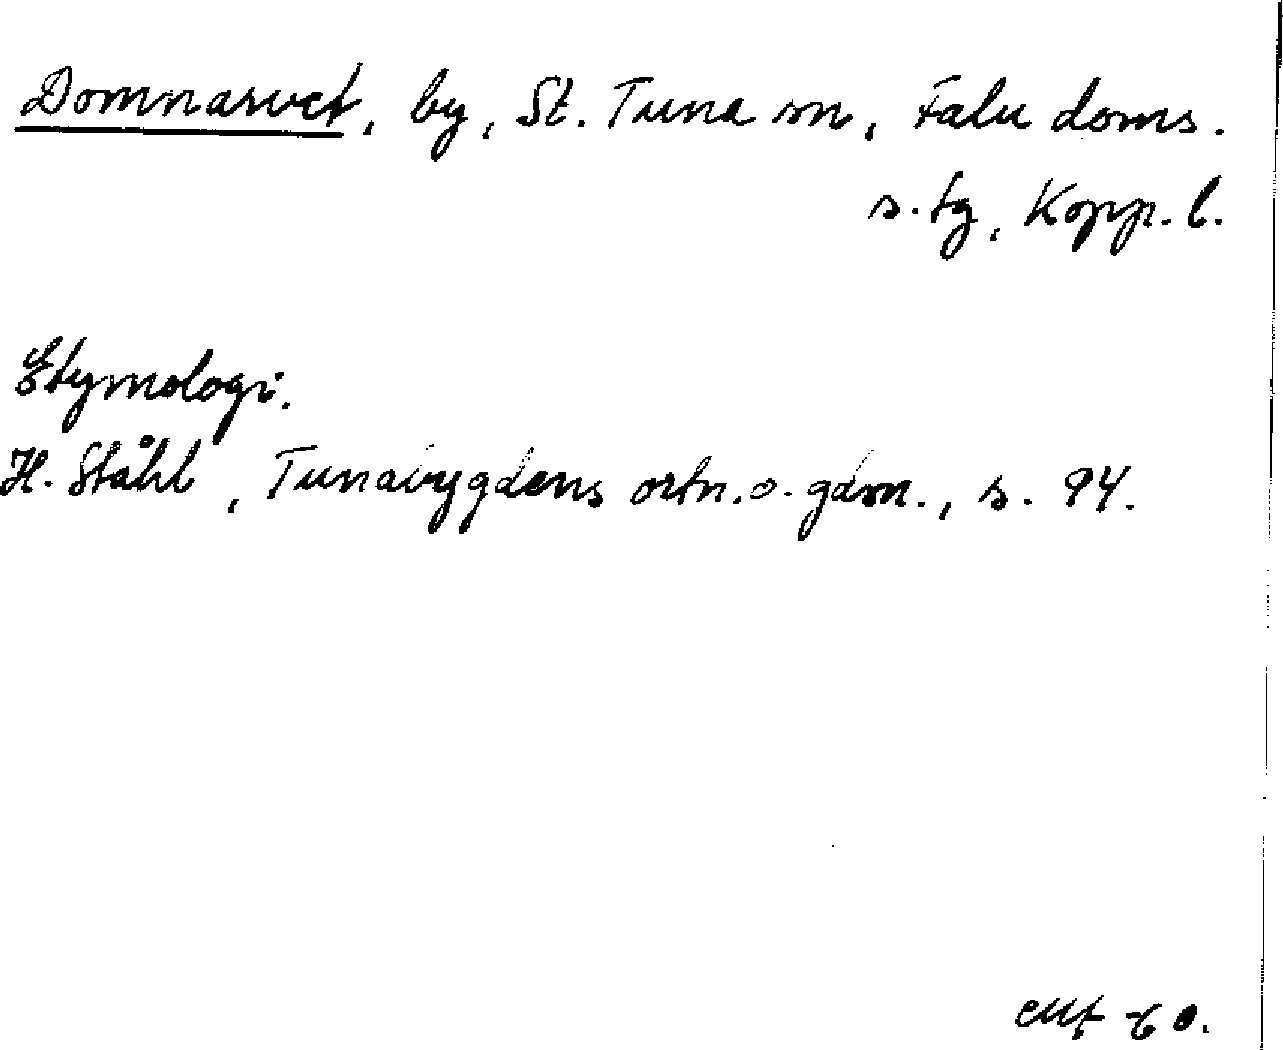 Domnarvet, by, St. Tuna sn, Falu doms.
s. tg, Kopp. l.
Etymologi.
H. Ståhl, Tunabygdens ortn. o. gdsn., s. 94.
-60.